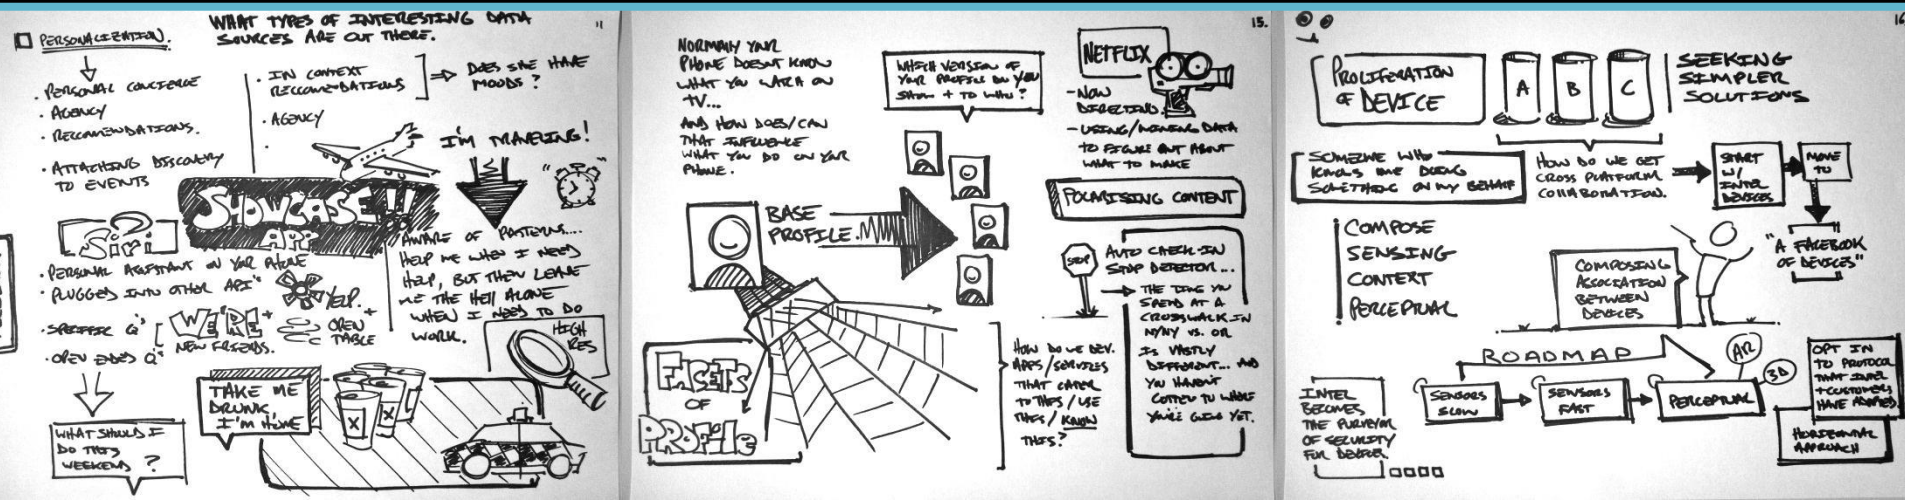 WHAT TYPES OF INTERESTING DATA
SOURCES ARE OUT THERE.
11
PERSONALIZATION.
· PERSONAL CONCIERGE
· AGENCY
· RECOMMENDATIONS.
· ATTACHING DISCOVERY
TO EVENTS
· IN CONTEXT
RECCOMENDATIONS
· AGENCY
DOES SHE HAVE
MOODS?
I'M TRAVELING!
SHOWCASE!!
APP
SiRi
· PERSONAL ASSISTANT ON YOUR PHONE
· PLUGGED INTO OTHER API'S
YELP.
+
OPEN
TABLE
· SPECIFIC Q'S
· OPEN ENDED Q'S
WE'RE +
NEW FRIENDS.
AWARE OF PATTERNS....
HELP ME WHEN I NEED
HELP, BUT THEN LEAVE
ME THE HELL ALONE
WHEN I NEED TO DO
WORK.
HIGH
RES
TAKE ME
DRUNK,
I'M HOME
X
X
WHAT SHOULD I
DO THIS
WEEKEND?
15.
NORMALLY YOUR
PHONE DOESNT KNOW
WHAT YOU WATCH ON
TV...
AND HOW DOES/CAN
THAT INFLUENCE
WHAT YOU DO ON YOUR
PHONE.
WHICH VERSION OF
YOUR PROFILE DO YOU
SHOW + TO WHO?
NETFLIX
- NOW
DIRECTING.
- USING/MINING DATA
TO FIGURE OUT ABOUT
WHAT TO MAKE
POLARISING CONTENT
BASE
PROFILE.
STOP
AUTO CHECK-IN
STOP DETECTOR...
THE TIME YOU
SPEND AT A
CROSSWALK IN
NY/NY VS. OR
IS VASTLY
DIFFERENT... AND
YOU HAVEN'T
GOTTEN TO WHERE
YOU'RE GOING YET.
FACETS
OF
PROFILE
HOW DO WE DEV.
APPS/SERVICES
THAT CATER
TO THIS / USE
THIS / KNOW
THIS?
16
PROLIFERATION
OF DEVICE
A
B
C
SEEKING
SIMPLER
SOLUTIONS
SOMEONE WHO
KNOWS ME DOING
SOMETHING ON MY BEHALF
HOW DO WE GET
CROSS PLATFORM
COLLABORATION.
START
W/
INTEL
DEVICES
MOVE
TO
"A FACEBOOK
OF DEVICES"
COMPOSE
SENSING
CONTEXT
PERCEPTUAL
COMPOSING
ASSOCIATION
BETWEEN
DEVICES
ROADMAP
AR
3D
SENSORS
SLOW
SENSORS
FAST
PERCEPTUAL
INTEL
BECOMES
THE PURVEYOR
OF SECURITY
FOR DEVICES.
OPT IN
TO PROTOCOL
THAT INTEL
+ CUSTOMERS
HAVE ADOPTED
HORIZONTAL
APPROACH